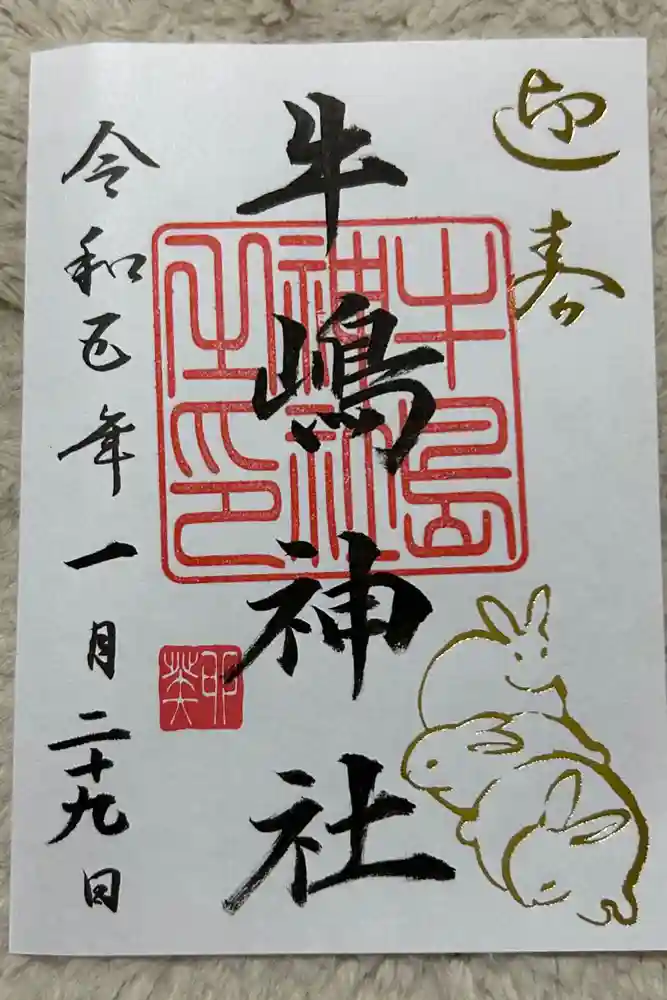 迎春
牛嶋神社
令和五年一月二十九日
牛嶋
神社
之印